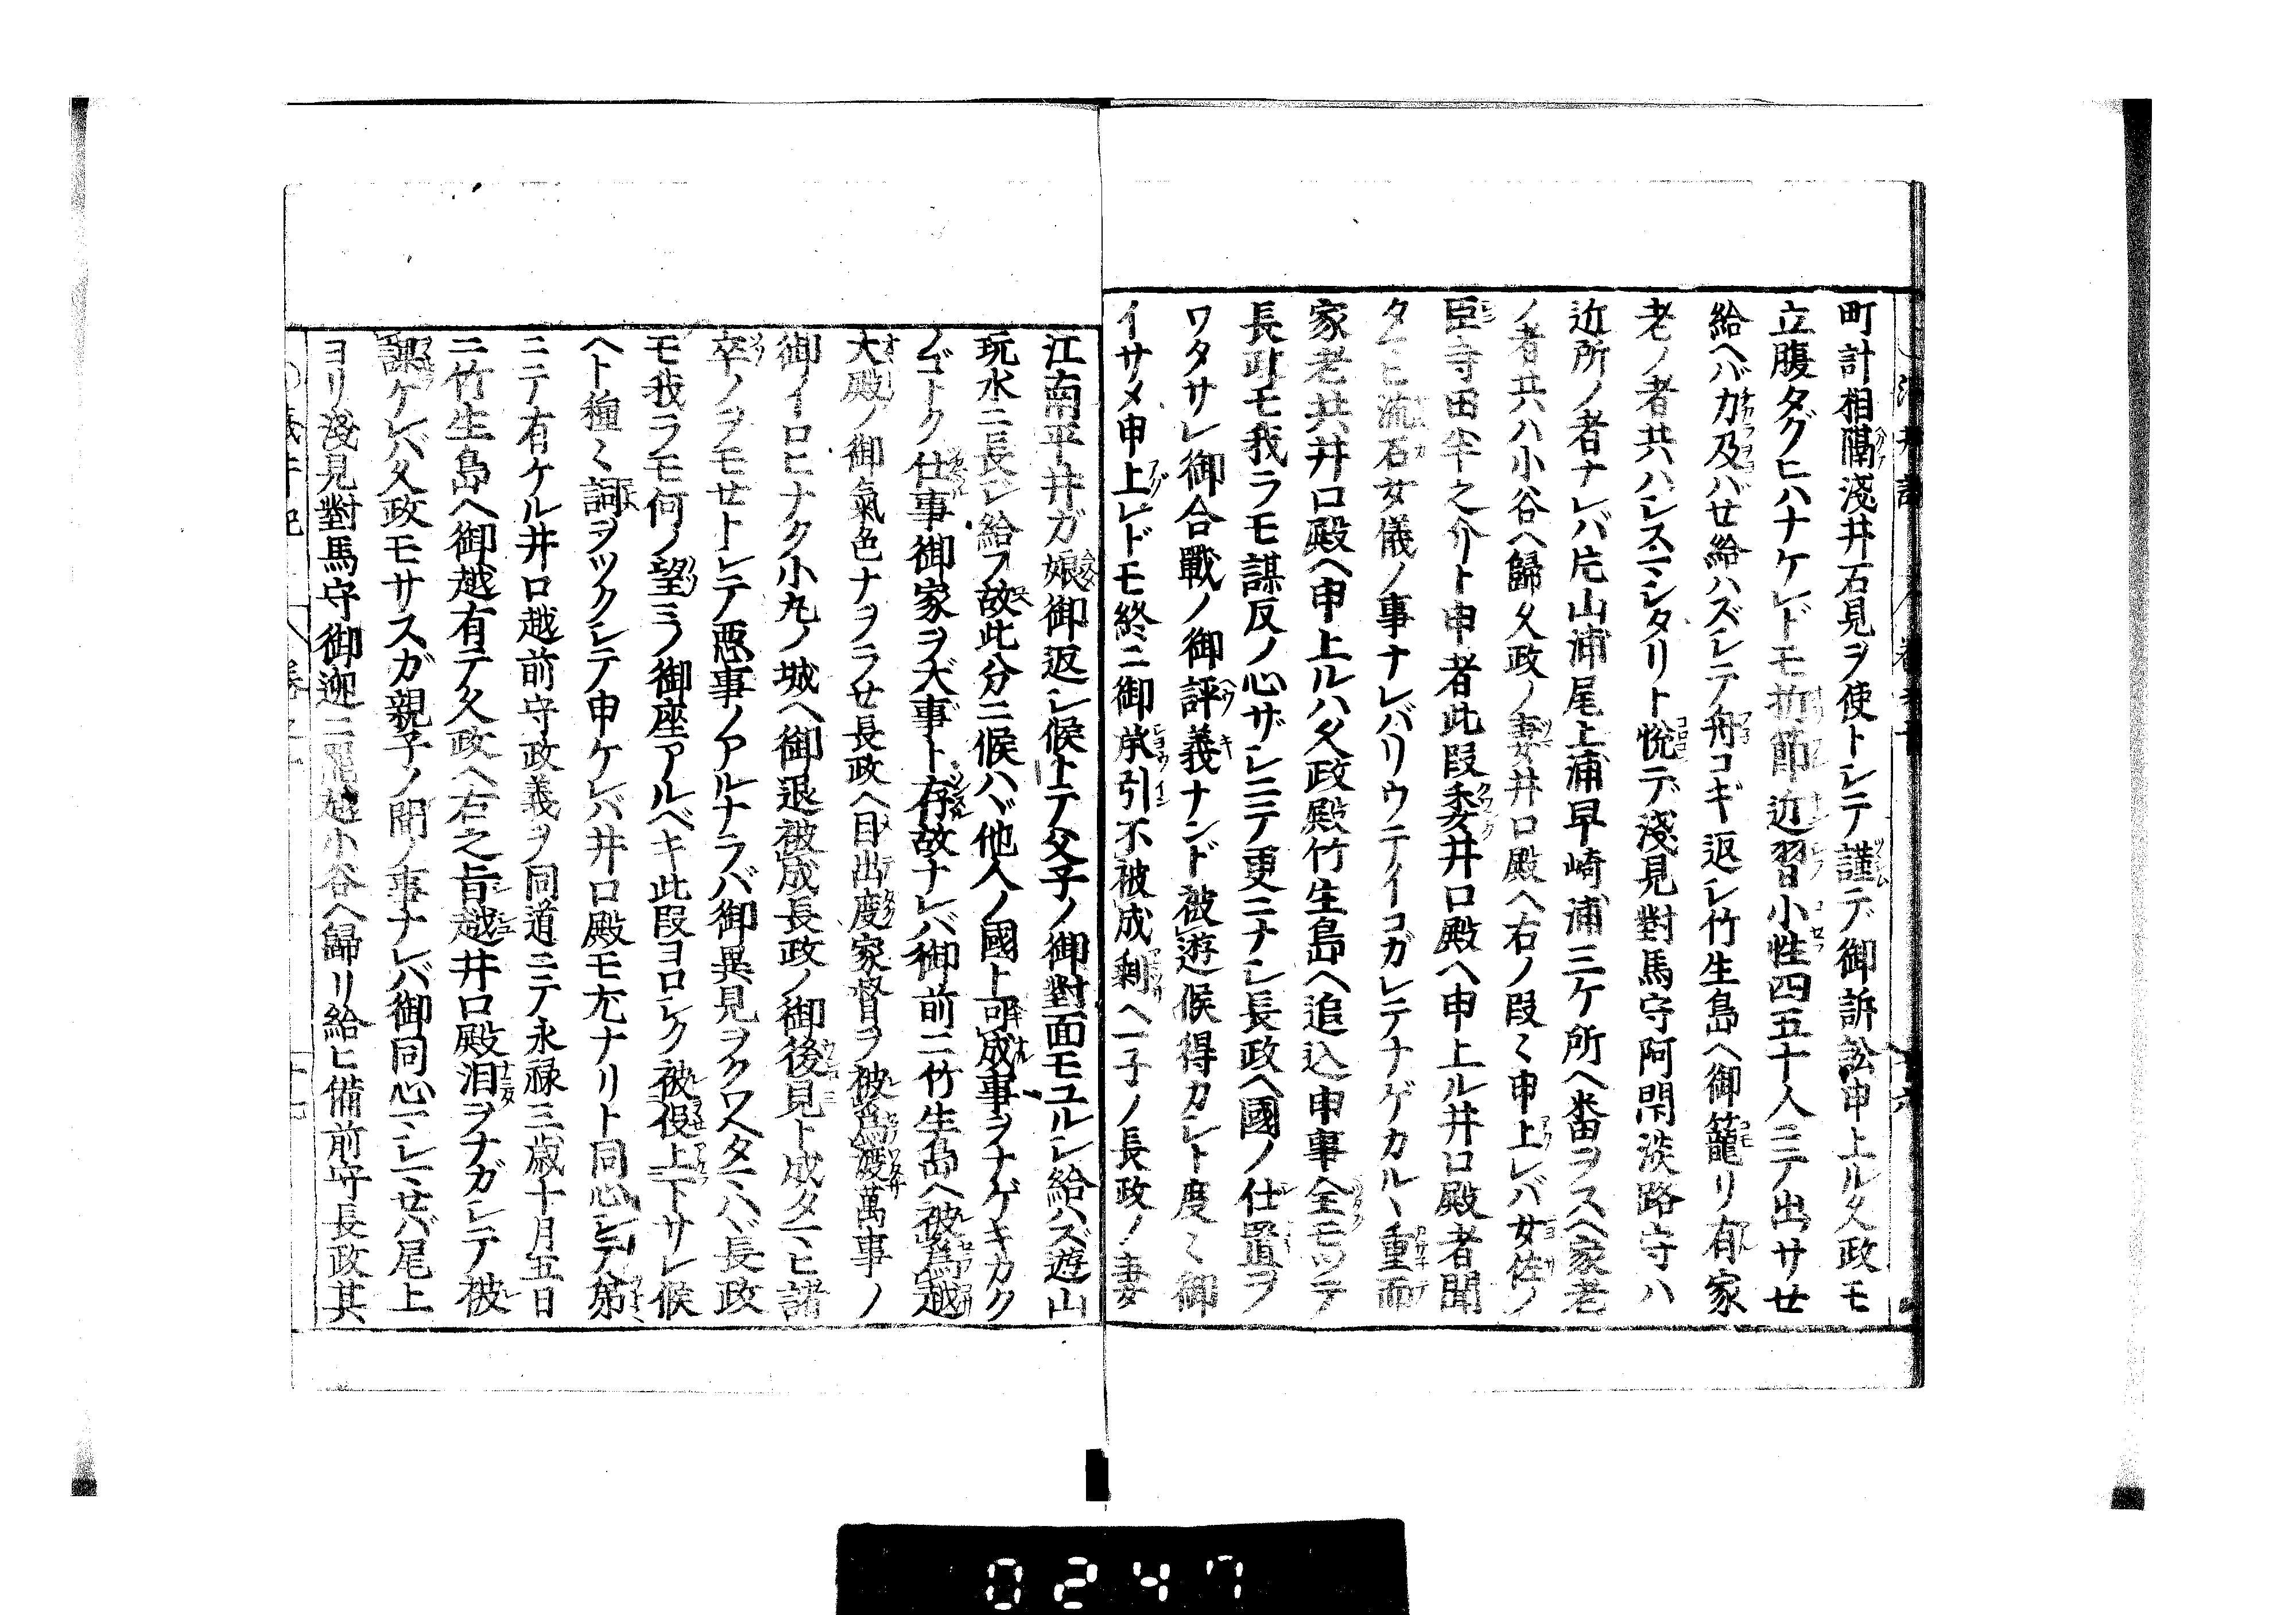 町計相隔淺井石見ヲ使トシテ謹デ御訴訟申上ル久政モ
立腹タグヒハナケレドモ折節近習小性四五十人ニテ出サセ
給ヘバカ及バセ給ハズシテ舟コギ返シ竹生島ヘ御籠リ有家
老ノ者共ハシスマシタリト悦デ淺見對馬守阿閉淡路守ハ
近所ノ者ナレバ片山浦尾上浦早崎浦三ケ所ヘ番ヲスヘ家老
ノ者共ハ小谷ヘ歸久政ノ妻井口殿ヘ右ノ段々申上レバ女佐ノ
臣寺田半之介ト申者此段委井口殿ヘ申上ル井口殿者聞
タマヒ流石女儀ノ事ナレバリウテイコガレテナゲカルヽ重而
家老共井口殿ヘ申上ルハ久政殿竹生島ヘ追込申事全モツテ
長政モ我ラモ謀反ノ心ザシニテ更ニナシ長政ヘ國ノ仕置ヲ
ワタサレ御合戰ノ御評義ナンド被遊候得カシト度々御
イサメ申上レドモ終ニ御承引不被成剰ヘ一子ノ長政ノ妻
江南平井ガ娘御返シ候上テ父子ノ御對面モユルシ給ハズ遊山
玩水ニ長ジ給フ故此分ニ候ハヾ他人ノ國ト可成事ヲナゲキカク
ノゴトク仕事御家ヲ大事ト存故ナレバ御前ニ竹生島ヘ被爲越
大殿ノ御氣色ナヲラセ長政ヘ目出度家督ヲ被爲渡萬事ノ
御イロヒナク小丸ノ城ヘ御退被成長政ノ御後見ト成タマヒ諸
卒ノヲモセトシテ惡事ノアルナラバ御異見ヲクワヘタマハヾ長政
モ我ラモ何ノ望ミノ御座アルベキ此段ヨロシク被仰上下サレ候
ヘト種々詞ヲツクシテ申ケレバ井口殿モ尤ナリト同心シテ弟
ニテ有ケル井口越前守政義ヲ同道ニテ永禄三歳十月五日
ニ竹生島ヘ御越有テ久政ヘ右之旨越井口殿泪ヲナガシテ被
ケレバ久政モサスガ親子ノ間ノ事ナレバ御同心マシマセバ尾上
ヨリ淺見對馬守御迎ニ罷越小谷ヘ歸リ給ヒ備前守長政其
0247